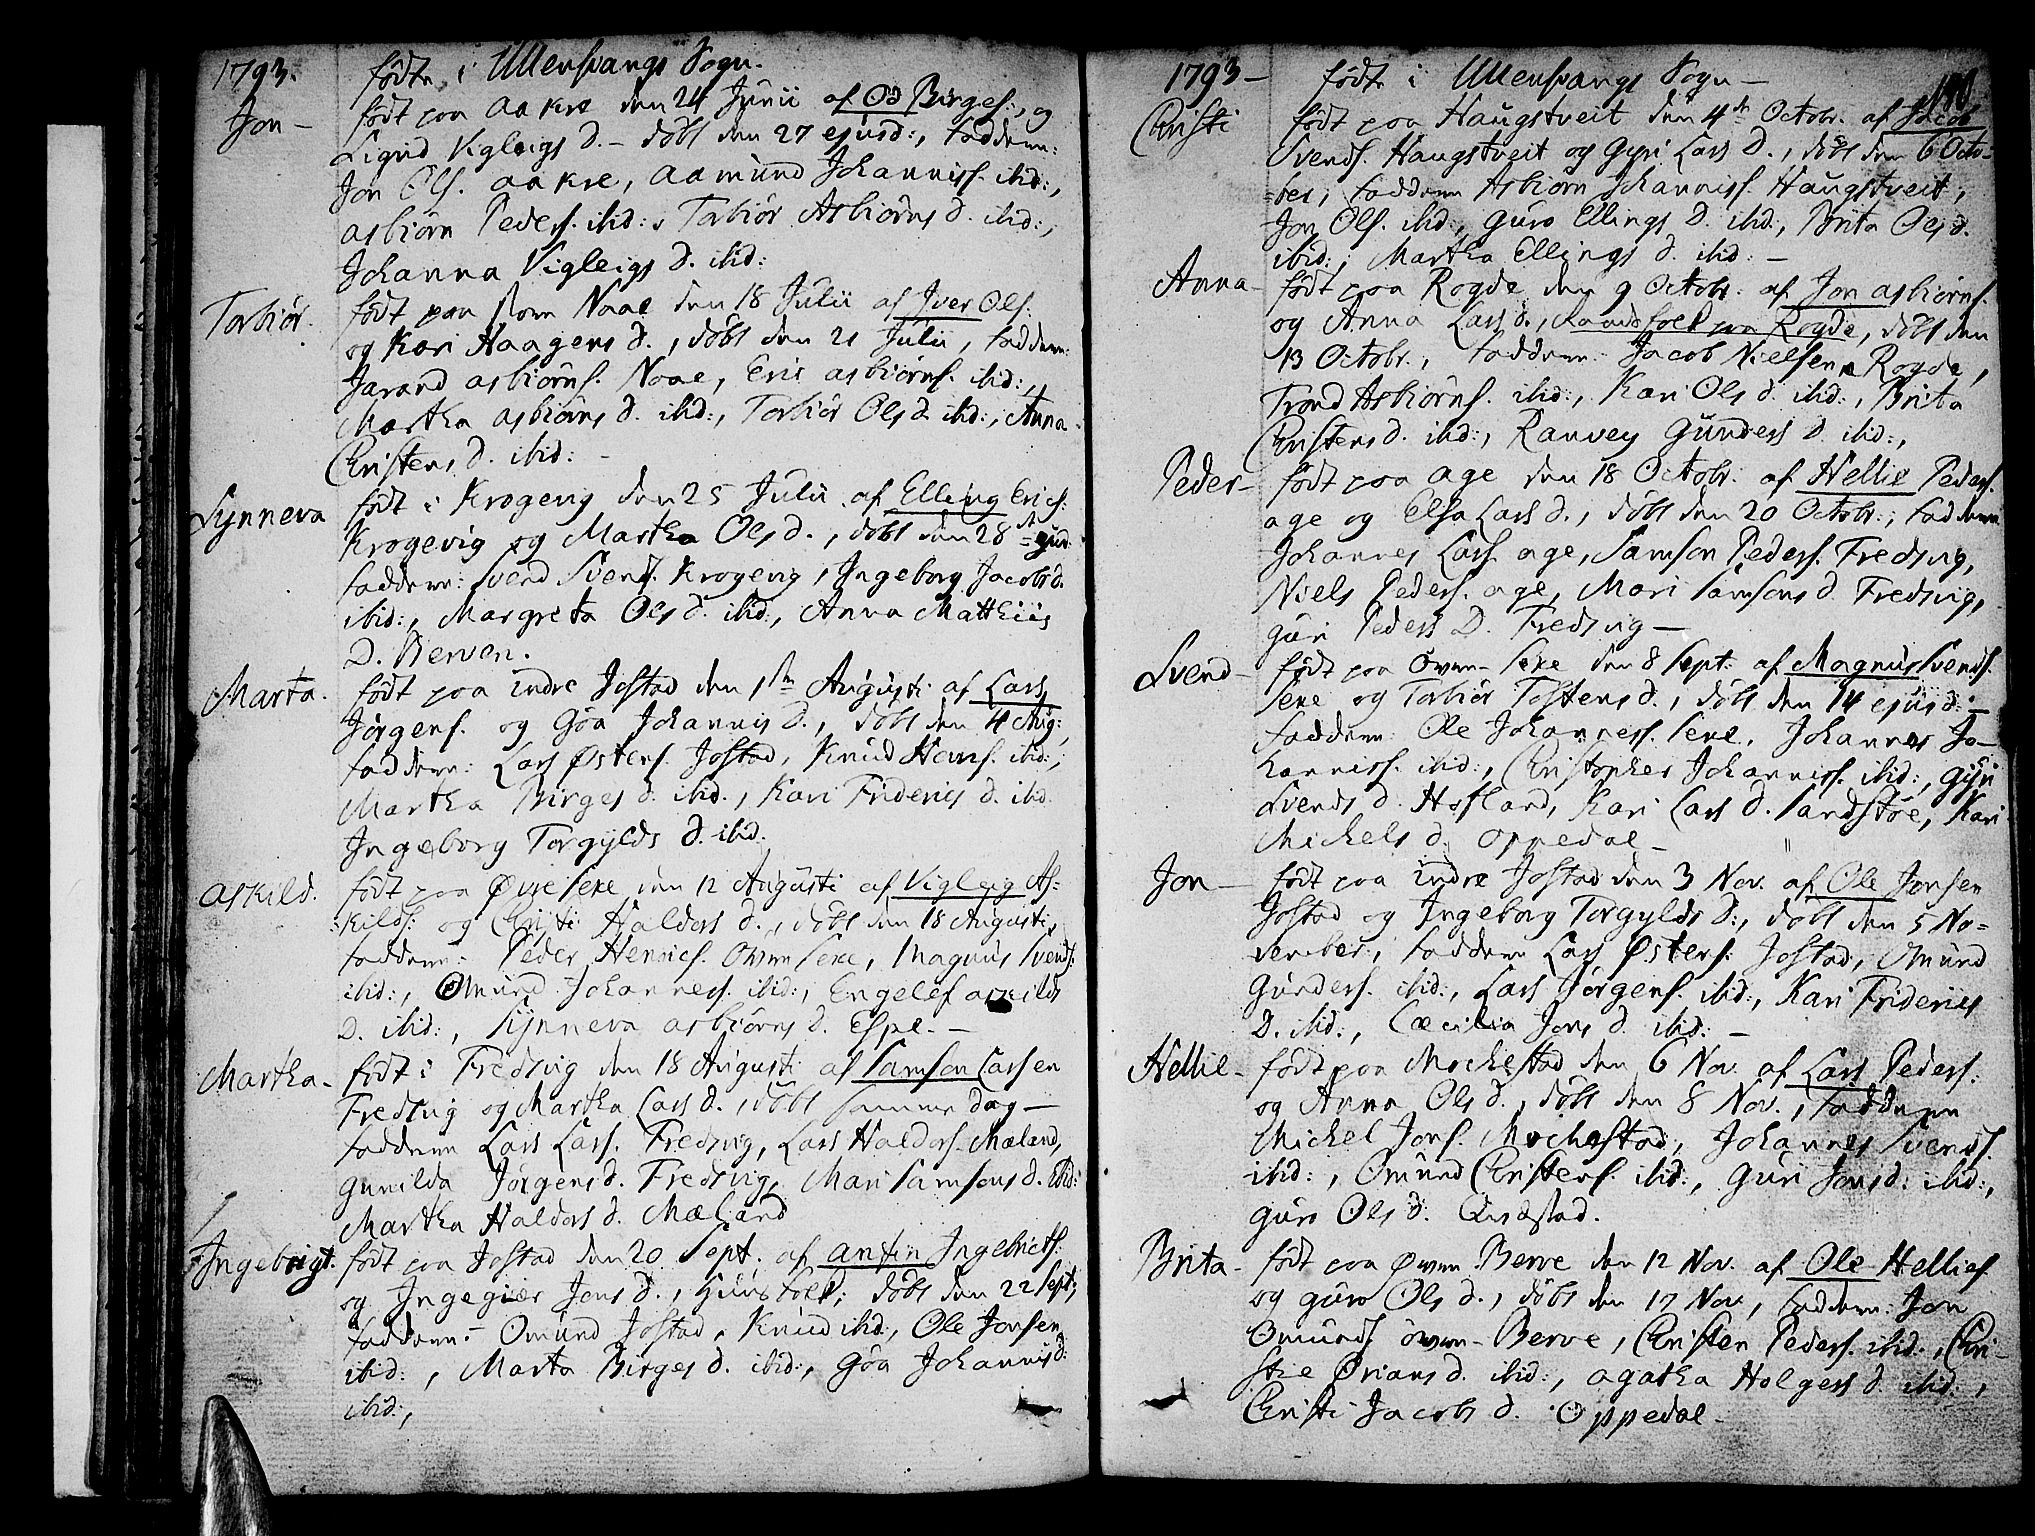 1793. fødte i Ullensvangs Sogn.
Jon – født paa Aakre den 24 Junii af Od Birges:, og
Sigrid Vigleigs D. – døbt den 27 ejusd:, faddere:
Jon Els. Aakre, Aamund Johanniss. ibid:,
Asbiørn Peders. ibid:, Torbiør Asbiørns D. ibid:,
Johanna Vigleigs D. ibid:
Torbiør. født paa store Naae den 18 Julii af Iver Ols:
og Kari Haagens D., døbt den 21 Julii, faddere:
Jarand Asbiørns. Naae, Eric Asbiørns. ibid:,
Martha Asbiørns D. ibid:, Torbiør Ols D. ibid:, Anna
Christens D. ibid: –
Synneva født i Krogevig den 25 Julii af Elling Erics:
Krogevig og Martha Ols D., døbt den 28
faddere: Svend Svends. Krogevig, Ingeborg Jacobs D.
ibid:, Margreta Ols D. ibid:, Anna Matthiis
D. Berven.
Marta. født paa indre Jostad den 1ste Augusti af Lars
Jørgens. og Göa Johannis D., døbt den 4 Aug:,
faddere: Lars Østens. Jostad, Knud Heins. ibid:,
Martha Birges D. ibid., Kari Friderics D. ibid.
Ingeborg Torgylds D. ibid.
Askild. født paa Øvre Sexe den 12 Augusti af Vigleig As=
kilds: og Christi Haldors D., døbt den 18 Augusti,
faddere: Peder Henrics. Øvre Sexe, Magnus Svends:
ibid:, Omund Johanness. ibid:, Engelef Askilds
D. ibid:, Synneva Asbiørns D. Espe. –
Martha – født i Fredsvig den 18 Augusti af Samson Larssen
Fredsvig og Martha Lars D., døbt samme Dag –
faddere Lars Lars. Fredsvig, Lars Haldors. Mæland,
Gunilda Jørgens D. Fredsvig, Mari Samsons D. ibid:
Martha Haldors D. Mæland
Ingebrigt. født paa Jostad den 20 Sept. af Anfin Ingebricts:
og Ingegiær Jons D., Huusfolk; døbt den 22 Sept;
faddere: – Omund Jostad, Knud ibid:, Ole Jonsen
ibid:, Marta Birges D. ibid:, Göa Johannis D:
ibid:,
1793 – fødte i Ullensvangs Sogn –
Christi født paa Haugstveit den 4de Octobr. af Jacob
Svends. Haugstveit og Gyri Lars D., døbt den 6 Octo=
=ber, faddere Asbiørn Johanniss. Haugstveit,
Jon Ols. ibid:, Guro Ellings D. ibid:, Brita Ols D.
ibid:, Martha Ellings D. ibid: –
Anna – født paa Rogde den 9 Octobr. af Jon Asbiørns.
og Anna Lars D., Raadsfolk paa Rogde, døbt den
13 Octobr., faddere: Jacob Nielsen Rogde,
Trond Asbiørns. ibid:, Kari Ols D. ibid:, Brita
Christens D. ibid:, Ranvey Gunders D. ibid:,
Peder – født paa Age den 18 Octobr. af Hellie Peders.
Age og Elsa Lars D., døbt den 20 Octobr., faddere
Johannes Lars. Age, Samson Peders. Fredsvig,
Niels Peders. Age, Mari Samsons D. Fredsvig,
Guri Peders D. Fredsvig –
Svend – født paa Øvre-Sexe den 8 Sept: af Magnus Svends.
Sexe og Torbiør Tostens D., døbt den 14 ejusd: –
faddere: Ole Johanness. Sexe, Johannes Jo-
hanniss. ibid:, Christopher Johanniss. ibid:, Gyri
Svends D. Hofland, Kari Lars D. Sandstøe, Kari
Michels D. Oppedal –
Jon – født paa indre Jostad den 3 Nov. af Ole Jonsen
Jostad og Ingeborg Torgylds D:, døbt den 5 No=
vember, faddere Lars Østens: Jostad, Omund
Gunders. ibid:, Lars Jørgens. ibid:, Kari Friderics
D. ibid:, Cæcilia Jons D. ibid: –
Hellie – født paa Mochestad den 6 Nov. af Lars Peders:
og Anna Ols D., døbt den 8 Nov., faddere
Michel Jons. Mochestad, Johannes Svends.
ibid:, Omund Christens. ibid:, Guri Jons D: ibid:,
Guro Ols D.
Brita – født paa Øvre Berve den 12 Nov. af Ole Hellies
og Guro Ols D., døbt den 17 Nov., faddere: Jon
Omunds Øvre-Berve, Christen Peders. ibid., Chri-
stie Ørians D. ibid:, Agatha Holgers D. ibid.,
Christi Jacobs D. Oppedal –